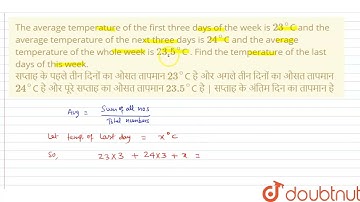 The average temperature of the first three days of the week is 23°C and
the average temperature of the next three days is 24°C and the average
temperature of the whole week is 23.5°C. Find the temperature of the last
days of this week.
सप्ताह के पहले तीन दिनों का औसत तापमान 23°C है और अगले तीन दिनों का औसत तापमान
24°C है और पूरे सप्ताह का औसत तापमान 23.5°C है | सप्ताह के अंतिम दिन का तापमान है
Avg = Sum of all nos
Total numbers
Let temp of last day = x°C
So, 23x3 + 24x3 + x =
doubtnut